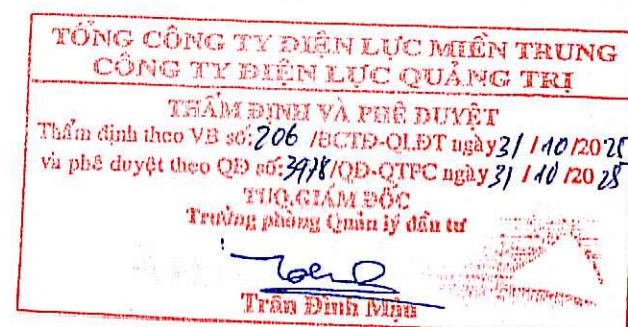 TỔNG CÔNG TY ĐIỆN LỰC MIỀN TRUNG
CÔNG TY ĐIỆN LỰC QUẢNG TRỊ
THẨM ĐỊNH VÀ PHÊ DUYỆT
Thẩm định theo VB số: 206 /BCTĐ-QLĐT ngày 31 / 10 /2025
và phê duyệt theo QĐ số: 3978/QĐ-QTPC ngày 31 / 10 /2025
TUQ.GIÁM ĐỐC
Trưởng phòng Quản lý đầu tư
Trần Đình Mậu